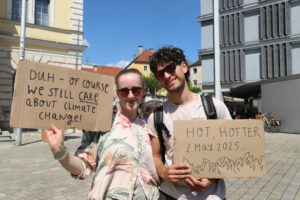 DUH - OF COURSE
WE STILL CARE
ABOUT CLIMATE
CHANGE!
HOT, HOTTER
2 MAY 2025...